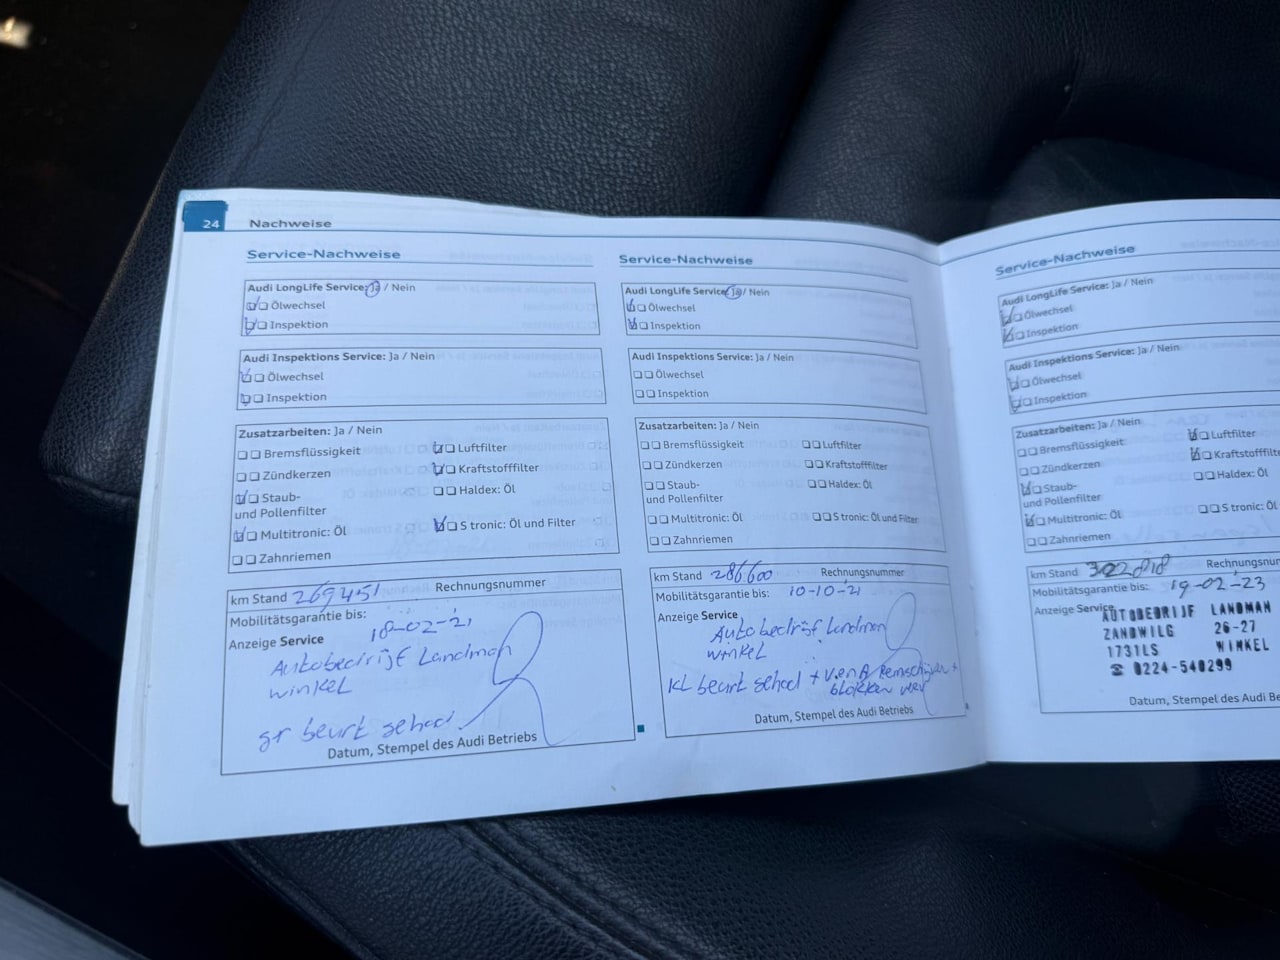 24 Nachweise
Service-Nachweise
Audi LongLife Service: Ja / Nein
Ölwechsel
Inspektion
Audi Inspektions Service: Ja / Nein
Ölwechsel
Inspektion
Zusatzarbeiten: Ja / Nein
Bremsflüssigkeit Luftfilter
Zündkerzen Kraftstofffilter
Staub- Haldex: Öl
und Pollenfilter
Multitronic: Öl S tronic: Öl und Filter
Zahnriemen
km Stand 269451 Rechnungsnummer
Mobilitätsgarantie bis:
Anzeige Service 18-02-21
Autobedrijf Landman
winkel
gr beurt gehad
Datum, Stempel des Audi Betriebs
Service-Nachweise
Audi LongLife Service: Ja / Nein
Ölwechsel
Inspektion
Audi Inspektions Service: Ja / Nein
Ölwechsel
Inspektion
Zusatzarbeiten: Ja / Nein
Bremsflüssigkeit Luftfilter
Zündkerzen Kraftstofffilter
Staub- Haldex: Öl
und Pollenfilter
Multitronic: Öl S tronic: Öl und Filter
Zahnriemen
km Stand 286600 Rechnungsnummer
Mobilitätsgarantie bis: 10-10-21
Anzeige Service
Autobedrijf Landman
winkel
KL beurt gehad + V.en A Remschijven +
blokken
Datum, Stempel des Audi Betriebs
Service-Nachweise
Audi LongLife Service: Ja / Nein
Ölwechsel
Inspektion
Audi Inspektions Service: Ja / Nein
Ölwechsel
Inspektion
Zusatzarbeiten: Ja / Nein
Bremsflüssigkeit Luftfilter
Zündkerzen Kraftstofffilter
Staub- Haldex: Öl
und Pollenfilter
Multitronic: Öl S tronic: Öl und
Zahnriemen
km Stand Rechnungsnu
Mobilitätsgarantie bis: 19-02-23
Anzeige Service
AUTOBEDRIJF LANDMAN
ZANDWILG 26-27
1731LS WINKEL
☎ 0224-540299
Datum, Stempel des Audi Be